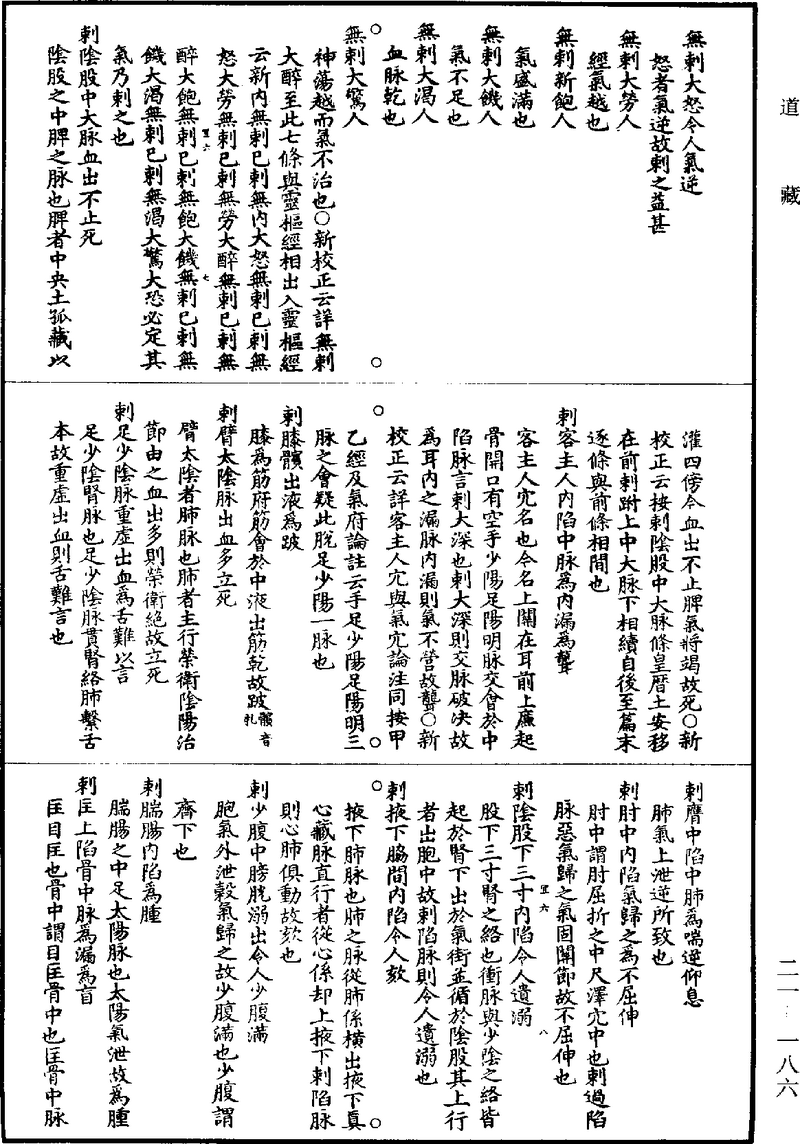 道藏
無刺大怒令人氣逆
怒者氣逆故刺之益甚
無刺大勞人
經氣越也
無刺新飽人
氣盛滿也
無刺大饑人
氣不足也
無刺大渴人
血脉乾也
無刺大驚人
神蕩越而氣不治也○新校正云詳無刺
大醉至此七條與靈樞經相出入靈樞經
云新内無刺已刺無内大怒無刺已刺無
怒大勞無刺已刺無勞大醉無刺已刺無
醉大飽無刺已刺無飽大饑無刺已刺無
饑大渴無刺已刺無渴大驚大恐必定其
氣乃刺之也
刺陰股中大脉血出不止死
陰股之中脾之脉也脾者中央土孤藏以
灌四傍今血出不止脾氣將竭故死○新
校正云按刺陰股中大脉條皇曆士安移
在前刺跗上中大脉下相續自後至篇末
逐條與前條相間也
刺客主人内陷中脉為内漏為聾
客主人穴名也今名上關在耳前上廉起
骨開口有空手少陽足陽明脉交會於中
陷脉言刺大深也刺大深則交脉破决故
為耳内之漏脉内漏則氣不營故聾○新
校正云詳客主人穴與氣穴論注同按甲
乙經及氣府論註云手足少陽足陽明三
脉之會疑此脱足少陽一脉也
刺膝髕出液為跛
膝為筋府筋會於中液出筋乾故跛髕音
刺臂太陰脉出血多立死
臂太陰者肺脉也肺者主行榮衛陰陽治
節由之血出多則榮衛絶故立死
刺足少陰脉重虚出血為舌難以言
足少陰腎脉也足少陰脉貫腎絡肺繫舌
本故重虚出血則舌難言也
刺膺中陷中肺為喘逆仰息
肺氣上泄逆所致也
刺肘中内陷氣歸之為不屈伸
肘中謂肘屈折之中尺澤穴中也刺過陷
脉惡氣歸之氣固關節故不屈伸也
刺陰股下三寸内陷令人遺溺
股下三寸腎之絡也衝脉與少陰之絡皆
起於腎下出於氣街並循於陰股其上行
者出胞中故刺陷脉則令人遺溺也
刺掖下脇間内陷令人欬
掖下肺脉也肺之脉從肺係横出掖下真
心藏脉直行者從心係却上掖下刺陷脉
則心肺俱動故欬也
刺少腹中膀胱溺出令人少腹滿
胞氣外泄穀氣歸之故少腹滿也少腹謂
齊下也
刺腨腸内陷為腫
腨腸之中足太陽脉也太陽氣泄故為腫
刺匡上陷骨中脉為漏為盲
匡目匡也骨中謂目匡骨中也匡骨中脉
二一–一八六